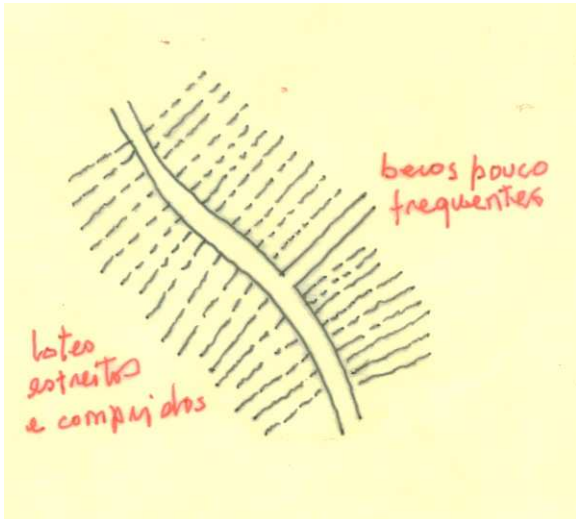 becos pouco
frequentes
lotes
estreitos
e compridos